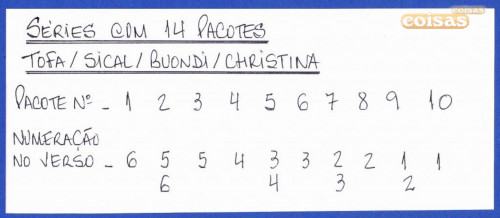 coisas
coisas
SÉRIES COM 14 PACOTES
TOFA / SICAL / BUONDI / CHRISTINA
PACOTE Nº - 1 2 3 4 5 6 7 8 9 10
NUMERAÇÃO
NO VERSO - 6 5 5 4 3 3 2 2 1 1
6 4 3 2